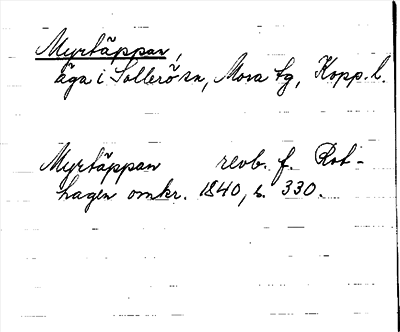 Myrtäppan,
äga i Sollerö sn, Mora tg, Kopp. l.
Myrtäppan revb. f. Rot-
hagen omkr. 1840, s. 330.